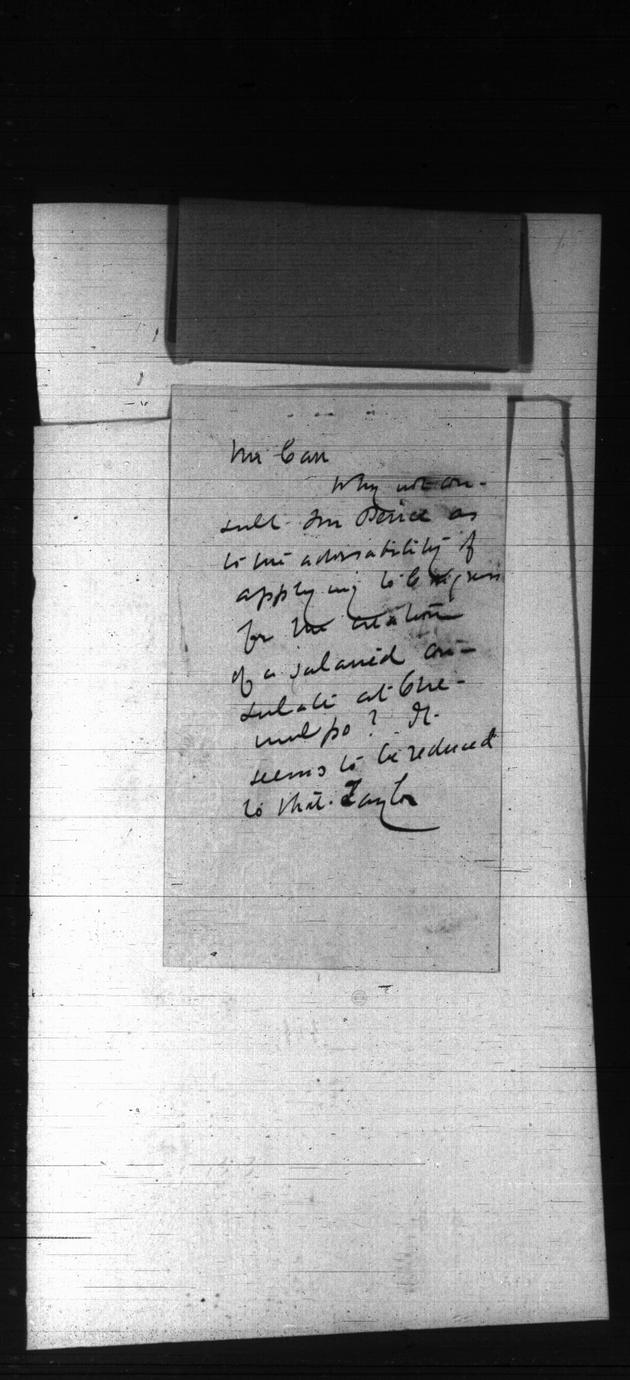 Mr Carr
Why not con-
sult Mr Pierce as
to the advisability of
applying to Congress
for the creation
of a salaried con-
sulate at Che-
mulpo? It
seems to be reduced
to that. Taylor